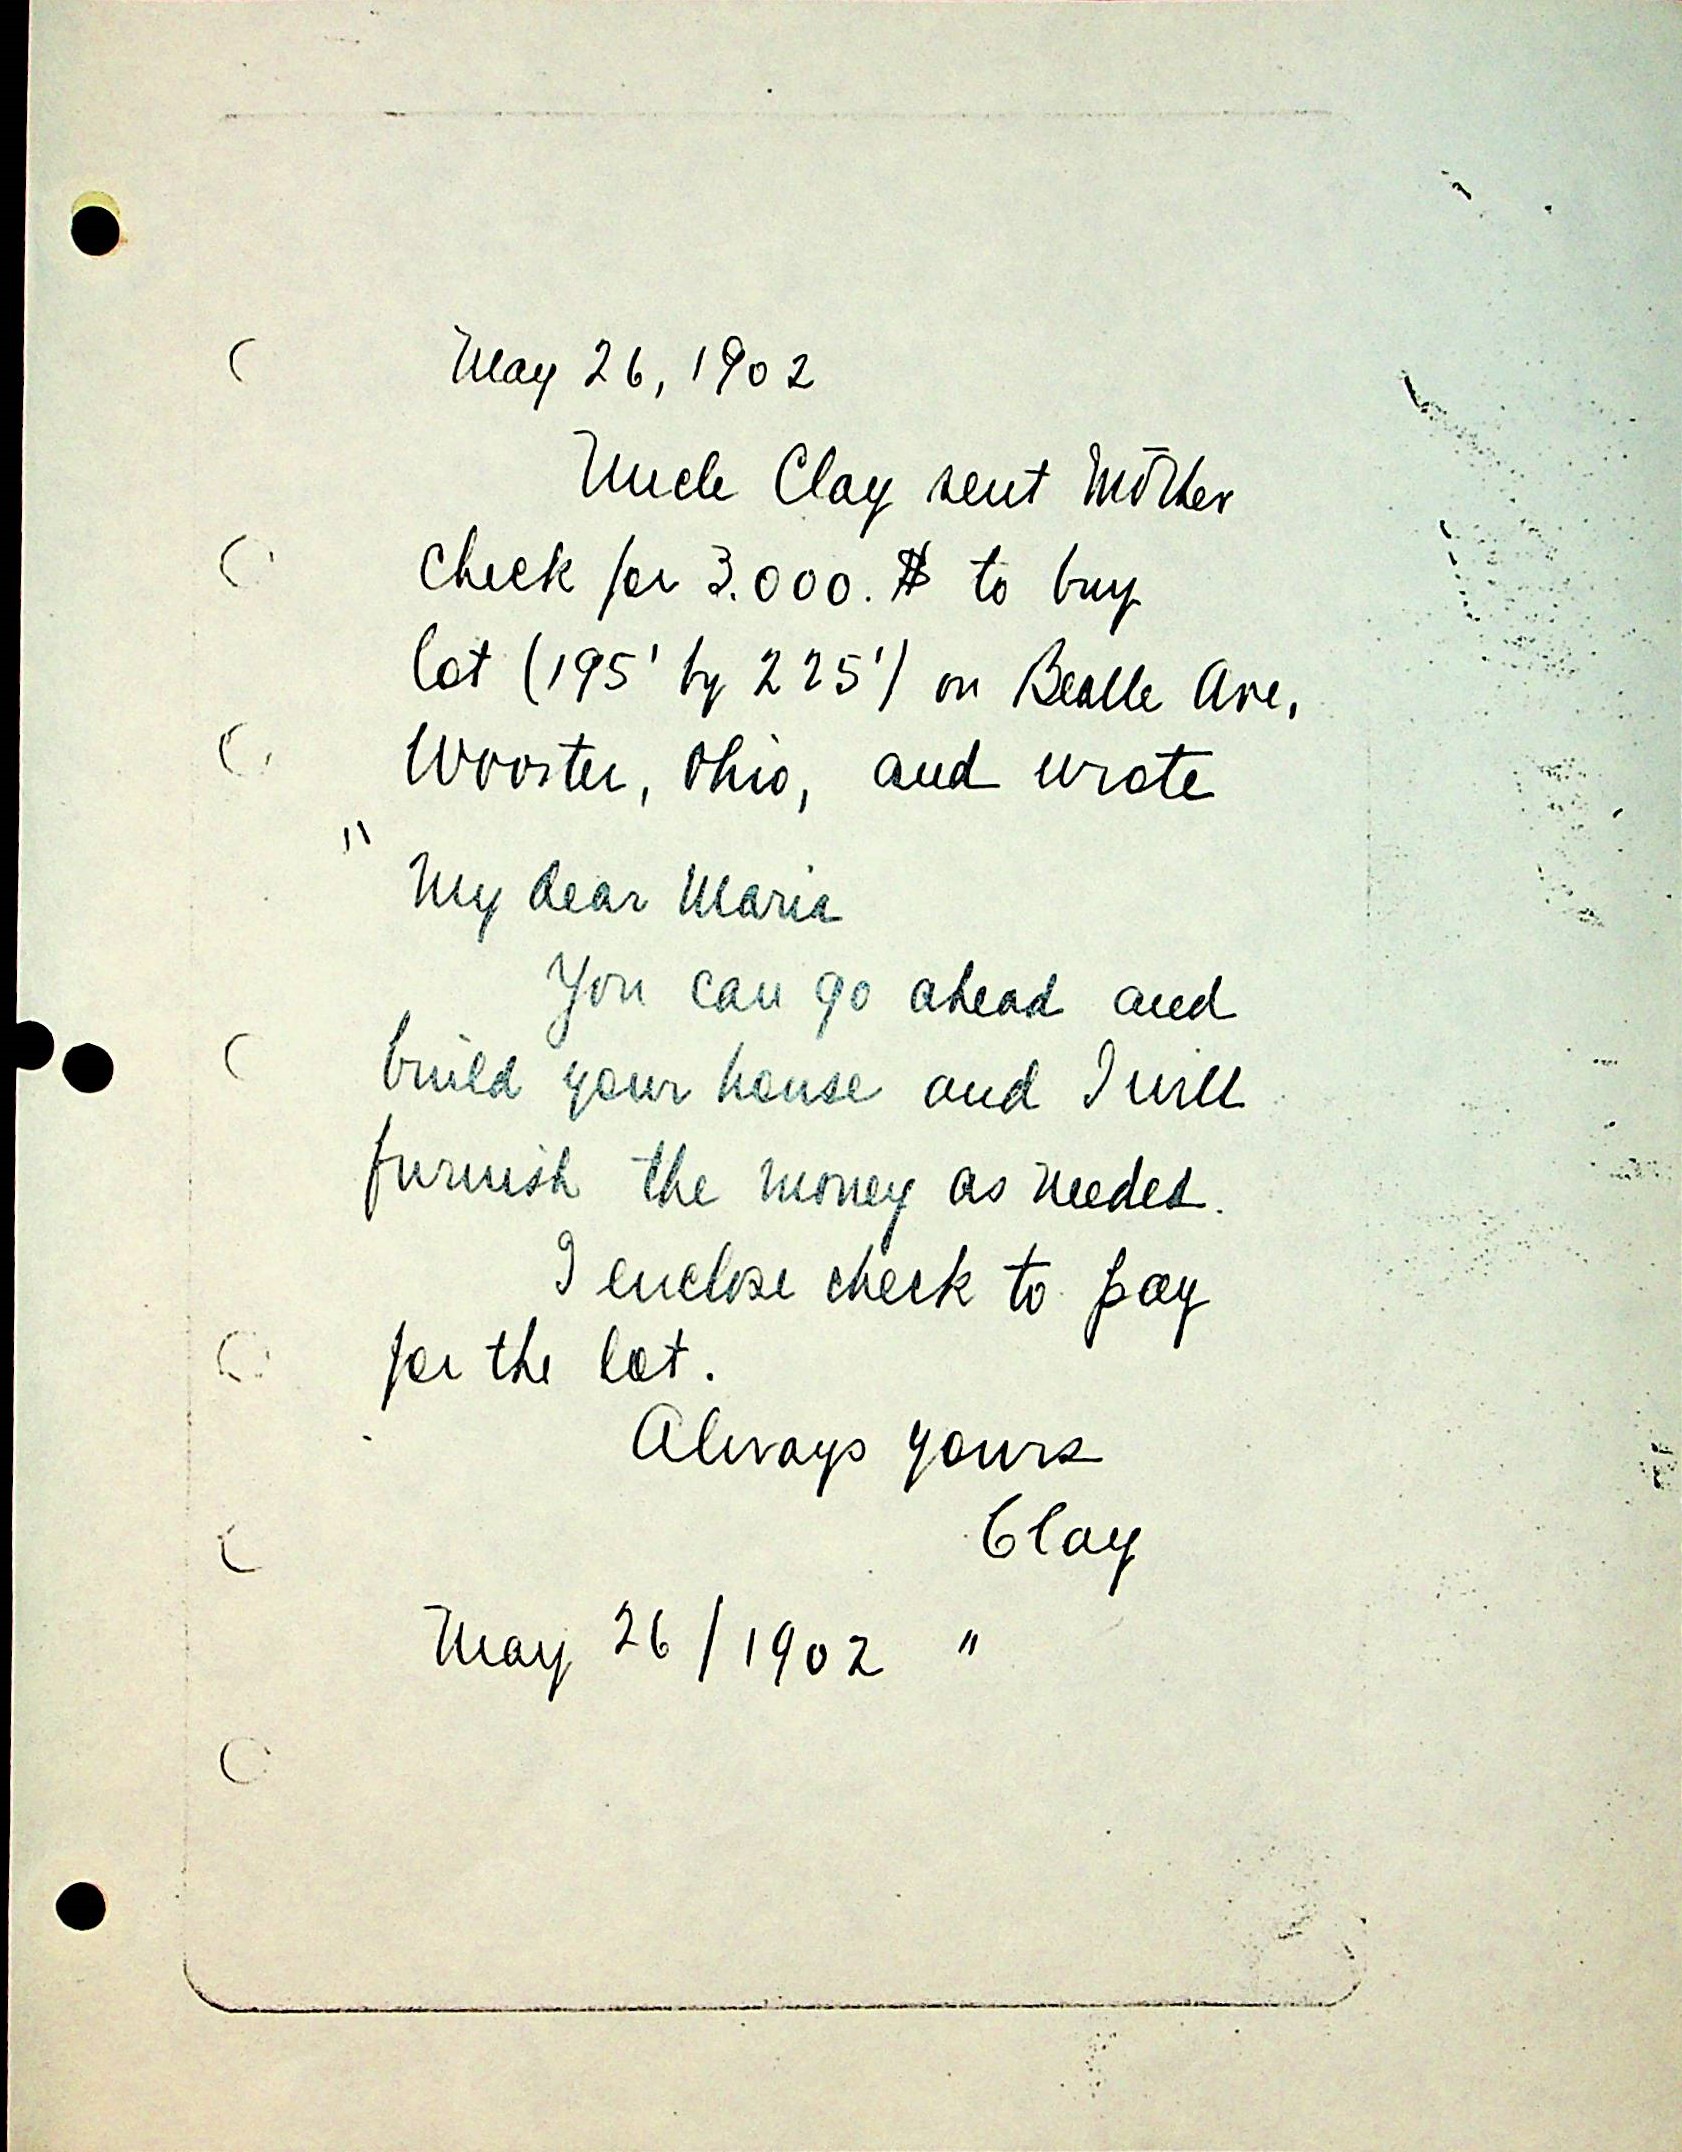 May 26, 1902
Uncle Clay sent Mother
check for 3.000. $ to buy
lot (195' by 225') on Bealle Ave,
Wooster, Ohio, and wrote
"My dear Maria
You can go ahead and
build your house and I will
furnish the money as needed.
I enclose check to pay
for the lot.
Always yours
Clay
May 26/1902 "